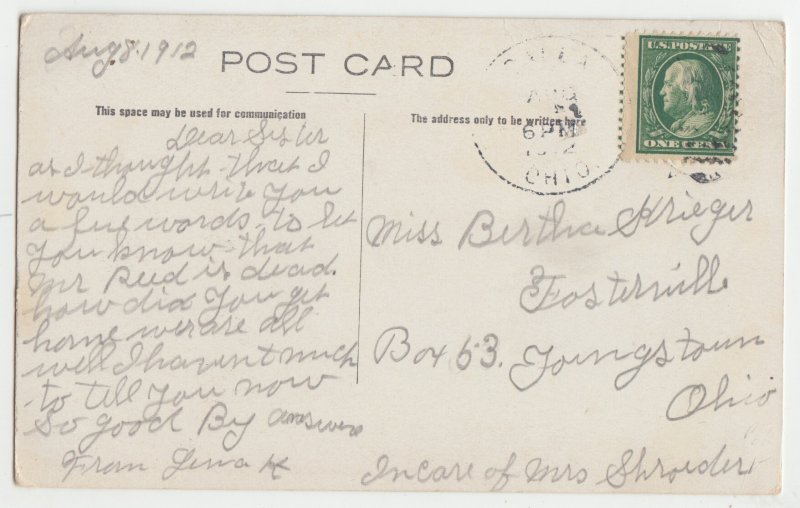 Aug 8. 1912
POST CARD
This space may be used for communication
The address only to be written here
U.S. POSTAGE
ONE CENT
AUG
6 PM
1912
OHIO.
Dear Sister
as I thought that I
would write you
a few words to let
you know that
Mr Reed is dead.
how did you get
home we are all
well I havent much
to tell you now
So good By answer
From Lena K
Miss Bertha Krieger
Fosterville
Box 63. Youngstown
Ohio
In care of Mrs Shroeder